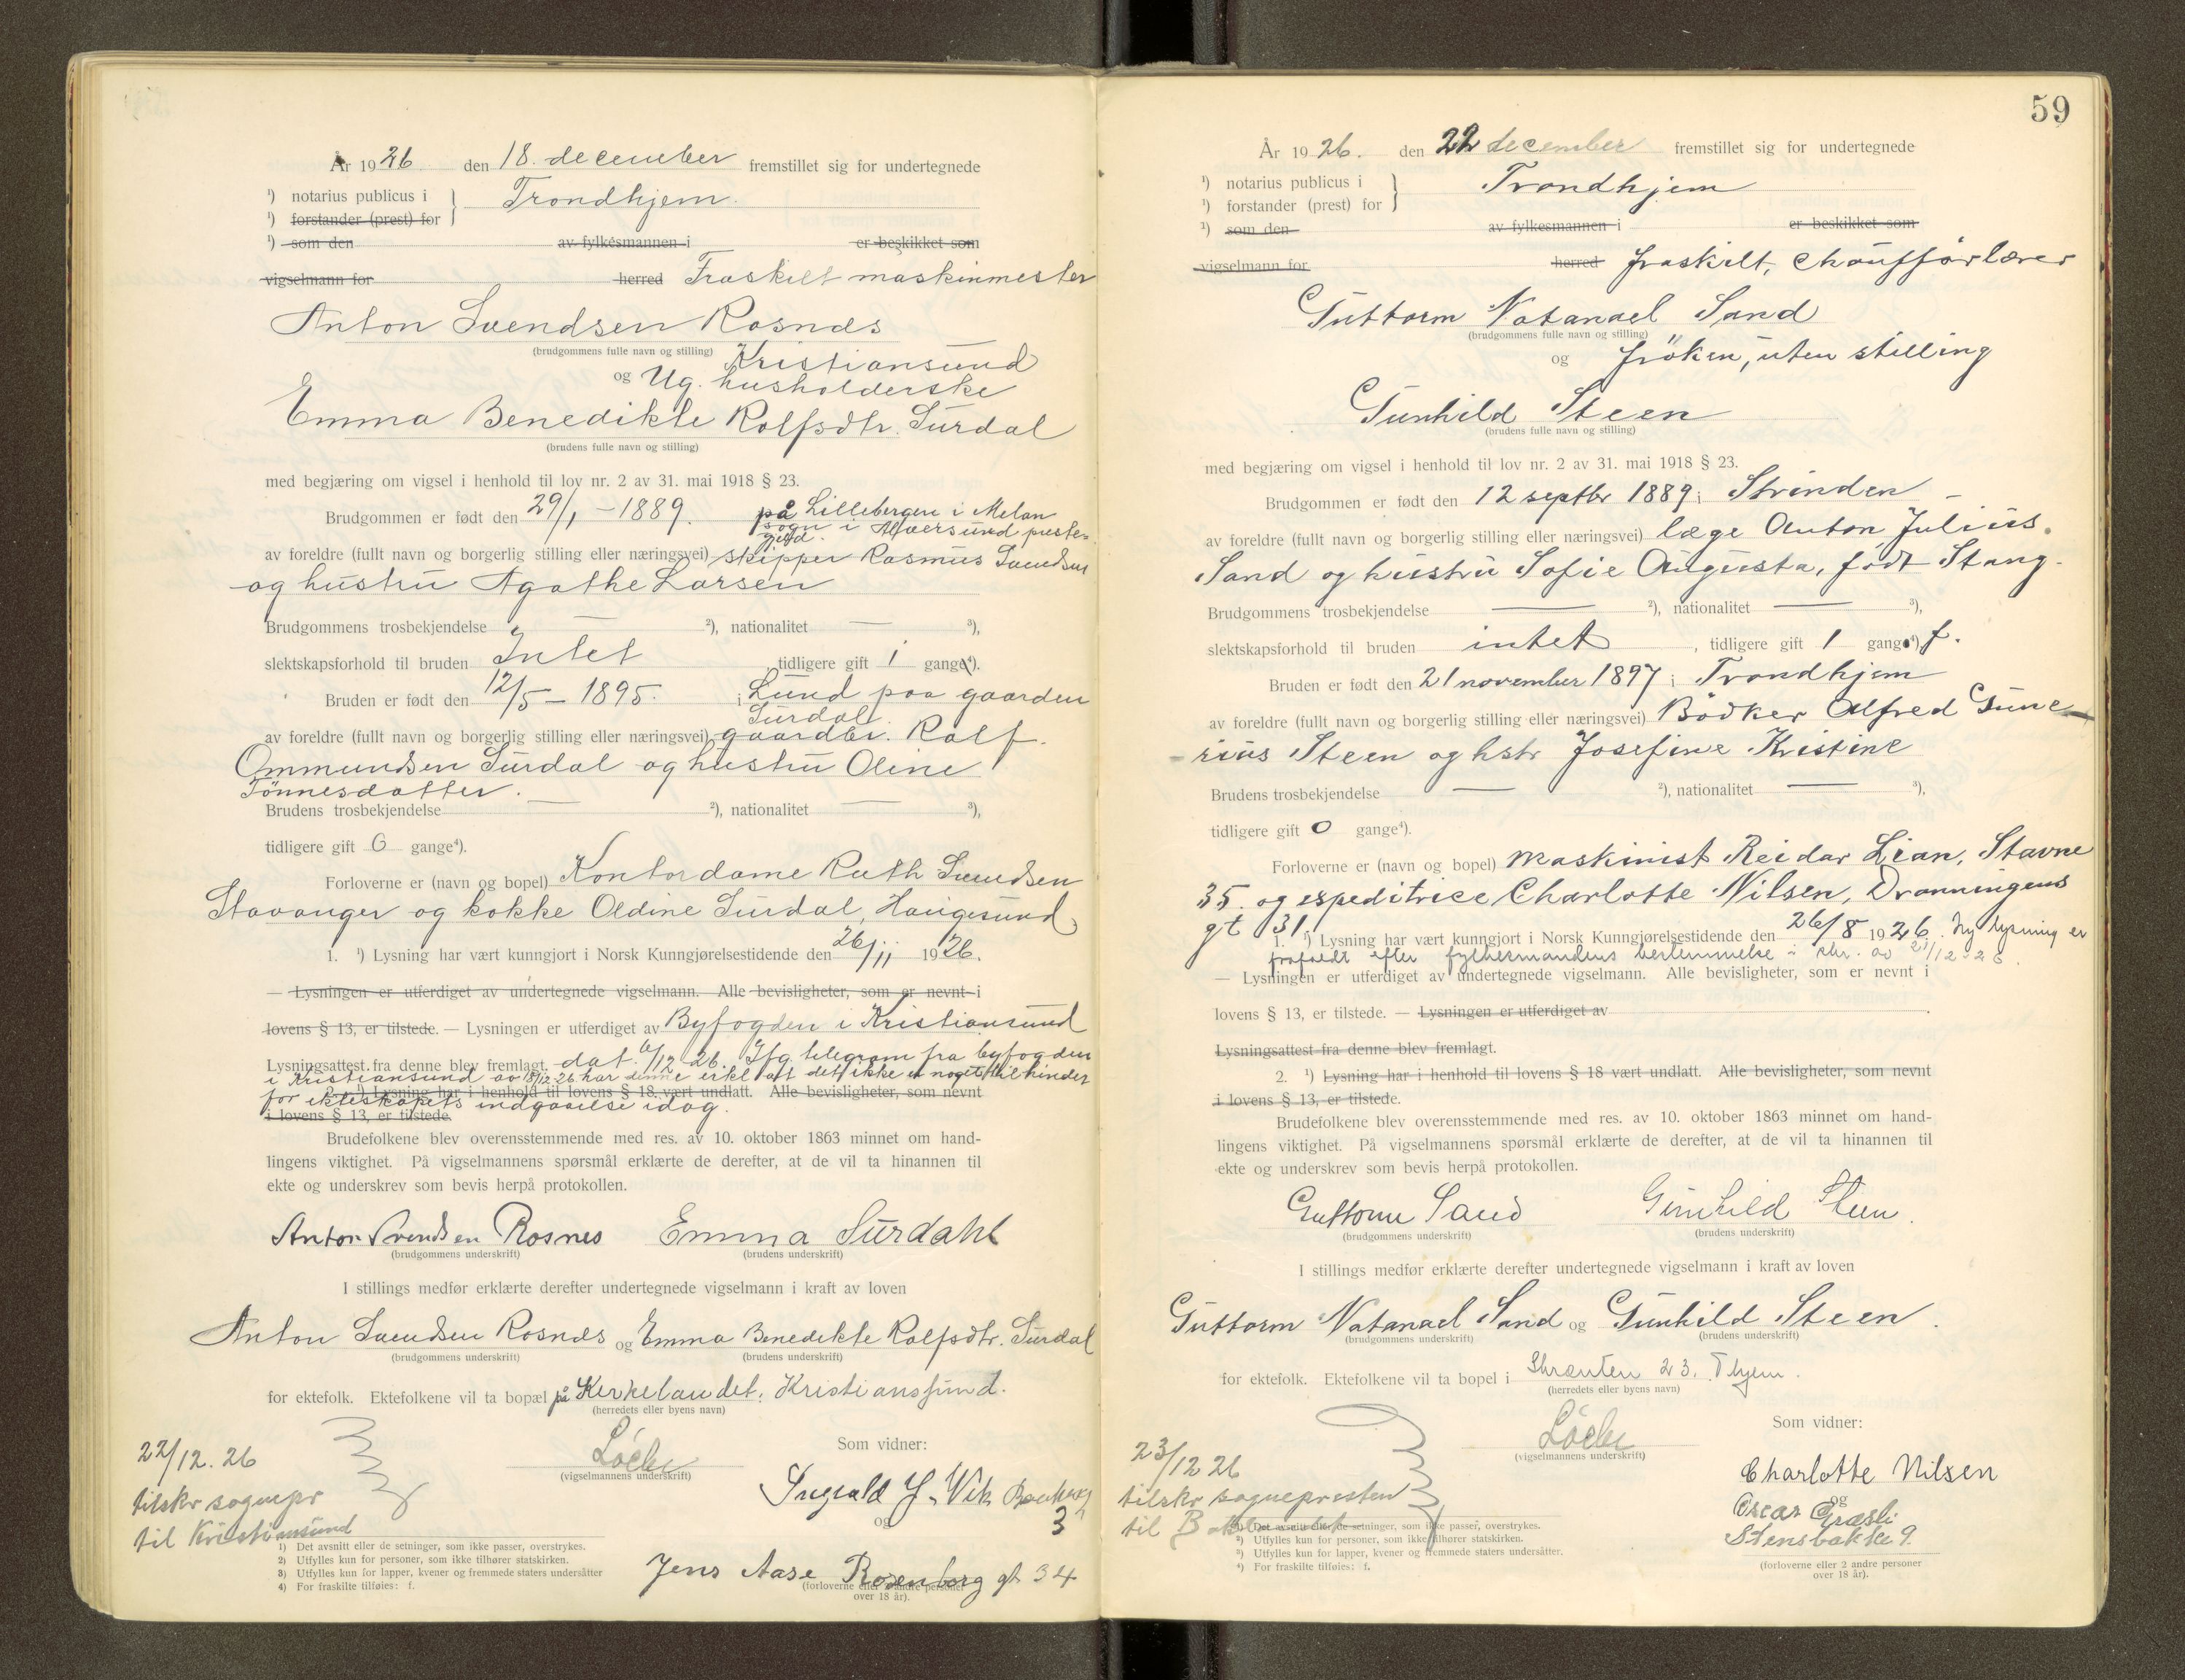 År 1926. den 18. december fremstillet sig for undertegnede
¹) notarius publicus i } Trondhjem.
¹) forstander (prest) for
¹) som den av fylkesmannen i er beskikket som
vigselmann for herred Fraskilt maskinmester
Anton Svendsen Rosnæs
(brudgommens fulle navn og stilling) Kristiansund
og Ug. husholderske
Emma Benedikte Rolfsdtr. Surdal
(brudens fulle navn og stilling)
med begjæring om vigsel i henhold til lov nr. 2 av 31. mai 1918 § 23.
Brudgommen er født den 29/1 – 1889. på Lillebergen i Melan
sogn i Alversund preste-
gjeld.
av foreldre (fullt navn og borgerlig stilling eller næringsvei) skipper Rasmus Svendsen
og hustru Agathe Larsen
Brudgommens trosbekjendelse — ²), nationalitet — ³),
slektskapsforhold til bruden Intet, tidligere gift 1 gange⁴).
Bruden er født den 12/5 – 1895. i Lund paa gaarden
Surdal.
av foreldre (fullt navn og borgerlig stilling eller næringsvei) gaardbr. Rolf
Ommundsen Surdal og hustru Oline
Tönnesdatter.
Brudens trosbekjendelse — ²), nationalitet — ³),
tidligere gift 0 gange⁴).
Forloverne er (navn og bopel) Kontordame Ruth Svendsen
Stavanger og kokke Oldine Surdal, Haugesund
1. ¹) Lysning har vært kunngjort i Norsk Kunngjørelsestidende den 26/11 1926.
— Lysningen er utferdiget av undertegnede vigselmann. Alle bevisligheter, som er nevnt i
lovens § 13, er tilstede. — Lysningen er utferdiget av Byfogden i Kristiansund
Lysningsattest fra denne blev fremlagt. dat. 6/12 26. Ifg. telegram fra byfogden
i Kristiansund av 18/12 26 har denne erkl. at det ikke er noget til hinder
2. ¹) Lysning har i henhold til lovens § 18 vært undlatt. Alle bevisligheter, som nevnt
for ekteskapets indgaaelse idag.
i lovens § 13, er tilstede.
Brudefolkene blev overensstemmende med res. av 10. oktober 1863 minnet om hand-
lingens viktighet. På vigselmannens spørsmål erklærte de derefter, at de vil ta hinannen til
ekte og underskrev som bevis herpå protokollen.
Anton Svendsen Rosnes Emma Surdahl
(brudgommens underskrift) (brudens underskrift)
I stillings medfør erklærte derefter undertegnede vigselmann i kraft av loven
Anton Svendsen Rosnæs og Emma Benedikte Rolfsdtr. Surdal
(brudgommens underskrift) (brudens underskrift)
for ektefolk. Ektefolkene vil ta bopæl på Kirkelandet, Kristianssund.
(herredets eller byens navn)
22/12. 26
tilskr sognepr
til Kristiansund
(vigselmannens underskrift)
Som vidner:
Vik
og
3
Jens Aase Rosenborg gt 34
(forloverne eller 2 andre personer
over 18 år).
1) Det avsnitt eller de setninger, som ikke passer, overstrykes.
2) Utfylles kun for personer, som ikke tilhører statskirken.
3) Utfylles kun for lapper, kvener og fremmede staters undersåtter
4) For fraskilte tilføies: f.
59
År 1926. den 22 december fremstillet sig for undertegnede
¹) notarius publicus i } Trondhjem
¹) forstander (prest) for
¹) som den av fylkesmannen i er beskikket som
vigselmann for herred fraskilt, chaufførlærer
Guttorm Natanael Sand
(brudgommens fulle navn og stilling)
og fröken, uten stilling
Gunhild Steen
(brudens fulle navn og stilling)
med begjæring om vigsel i henhold til lov nr. 2 av 31. mai 1918 § 23.
Brudgommen er født den 12 septbr 1889 i Strinden –
av foreldre (fullt navn og borgerlig stilling eller næringsvei) læge Anton Julius
Sand og hustru Sofie Augusta, födt Stang.
Brudgommens trosbekjendelse — ²), nationalitet — ³),
slektskapsforhold til bruden intet, tidligere gift 1 gang⁴) f.
Bruden er født den 21 november 1897 i Trondhjem
av foreldre (fullt navn og borgerlig stilling eller næringsvei) Bödker Alfred Gune-
-rius Steen og hstr Josefine Kristine
Brudens trosbekjendelse — ²), nationalitet — ³),
tidligere gift 0 gange⁴).
Forloverne er (navn og bopel) maskinist Reidar Lian, Stavne
35. og espeditrice Charlotte Nilsen, Dronningens
gt 31.
1. ¹) Lysning har vært kunngjort i Norsk Kunngjørelsestidende den 26/8 1926. Ny lysning er
frafaldt efter fylkesmandens bestemmelse i skr. av 21/12 26.
— Lysningen er utferdiget av undertegnede vigselmann. Alle bevisligheter, som er nevnt i
lovens § 13, er tilstede. — Lysningen er utferdiget av
Lysningsattest fra denne blev fremlagt.
2. ¹) Lysning har i henhold til lovens § 18 vært undlatt. Alle bevisligheter, som nevnt
i lovens § 13, er tilstede.
Brudefolkene blev overensstemmende med res. av 10. oktober 1863 minnet om hand-
lingens viktighet. På vigselmannens spørsmål erklærte de derefter, at de vil ta hinannen til
ekte og underskrev som bevis herpå protokollen.
Guttorm Sand Gunhild Steen.
(brudgommens underskrift) (brudens underskrift)
I stillings medfør erklærte derefter undertegnede vigselmann i kraft av loven
Guttorm Natanael Sand og Gunhild Steen.
(brudgommens underskrift) (brudens underskrift)
for ektefolk. Ektefolkene vil ta bopel i Skrænten 23. Thjem.
(herredets eller byens navn)
23/12 26
tilskr sognepresten
til
(vigselmannens underskrift)
Som vidner:
Charlotte Nilsen
og
Oscar Græsli
Stensbakke 9.
(forloverne eller 2 andre personer
over 18 år).
¹) Det avsnitt eller de setninger, som ikke passer, overstrykes.
²) Utfylles kun for personer, som ikke tilhører statskirken.
³) Utfylles kun for lapper, kvener og fremmede staters undersåtter.
⁴) For fraskilte tilføies: f.